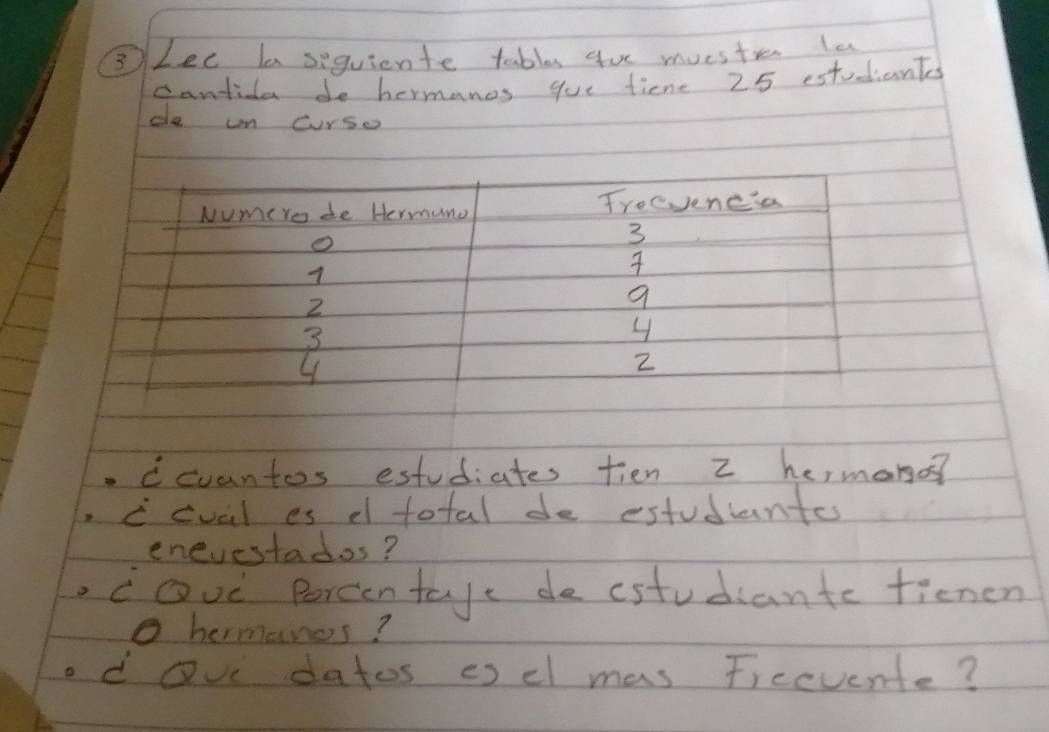 ③ Lee la siguiente tabla que muestra la
cantida de hermanos que tiene 25 estudiantes
de un curso
Numero de Hermano Frecuencia
0 3
1 7
2 9
3 4
4 2
• ¿cuantos estudiates tien 2 hermanos?
• ¿cuál es el total de estudiantes
encuestados?
• ¿Qué Porcentaje de estudiante tienen
0 hermanos?
• ¿Qué datos es el mas Frecuente?